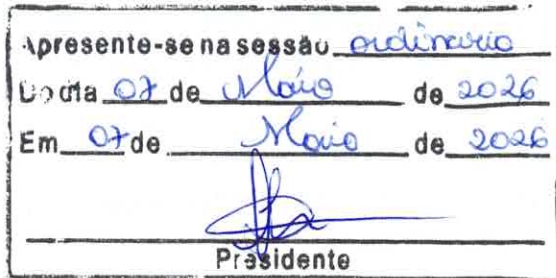 Apresente-se na sessão ordinario
Do dia 07 de Maio de 2026
Em 07 de Maio de 2026
Presidente